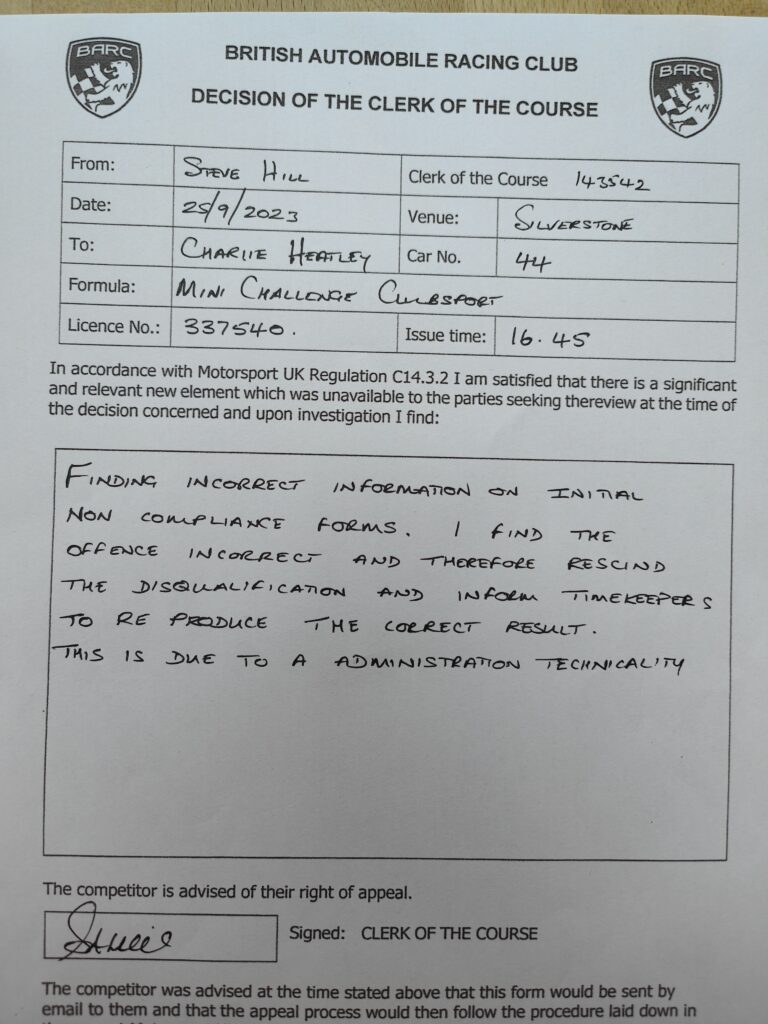 BARC
BRITISH AUTOMOBILE RACING CLUB
BARC
DECISION OF THE CLERK OF THE COURSE
From: STEVE HILL Clerk of the Course 143542
Date: 25/9/2023 Venue: SILVERSTONE
To: CHARLIE HEATLEY Car No. 44
Formula: MINI CHALLENGE CLUBSPORT
Licence No.: 337540. Issue time: 16.45
In accordance with Motorsport UK Regulation C14.3.2 I am satisfied that there is a significant
and relevant new element which was unavailable to the parties seeking thereview at the time of
the decision concerned and upon investigation I find:
FINDING INCORRECT INFORMATION ON INITIAL
NON COMPLIANCE FORMS. I FIND THE
OFFENCE INCORRECT AND THEREFORE RESCIND
THE DISQUALIFICATION AND INFORM TIMEKEEPERS
TO RE PRODUCE THE CORRECT RESULT.
THIS IS DUE TO A ADMINISTRATION TECHNICALITY
The competitor is advised of their right of appeal.
Signed: CLERK OF THE COURSE
The competitor was advised at the time stated above that this form would be sent by
email to them and that the appeal process would then follow the procedure laid down in